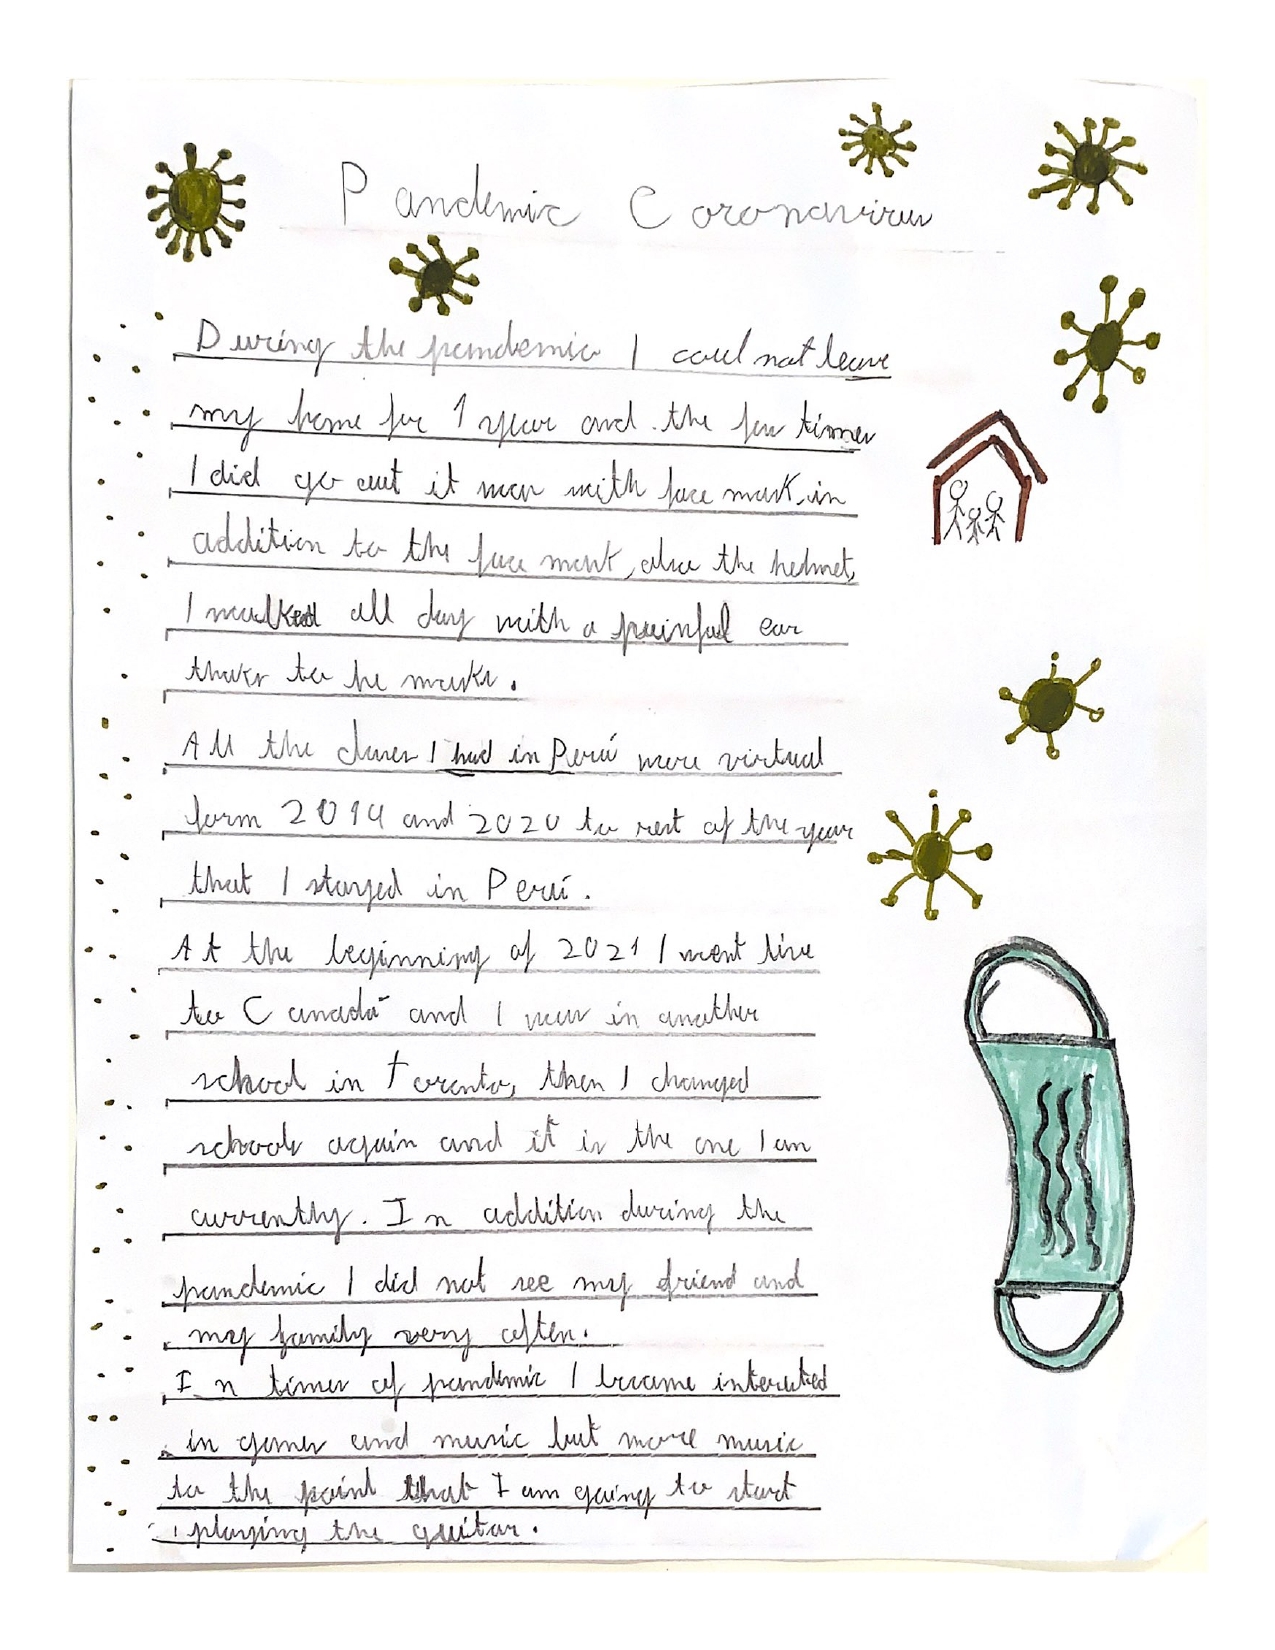 Pandemic Coronavirus
During the pandemic I coul not leave
my home for 1 year and the few times
I did go out it was with face mask, in
addition to the face mask, also the helmet,
I walked all day with a painful ear
thaks to he masks.
All the classes I had in Perú were virtual
form 2019 and 2020 to rest of the year
that I stayed in Perú.
At the beginning of 2021 I went live
to Canadá and I was in another
school in toronto, then I changed
schools again and it is the one I am
currently. In addition during the
pandemic I did not see my friend and
my family very often.
In times of pandemic I became interested
in games and music but more music
to the point that I am going to start
playing the guitar.